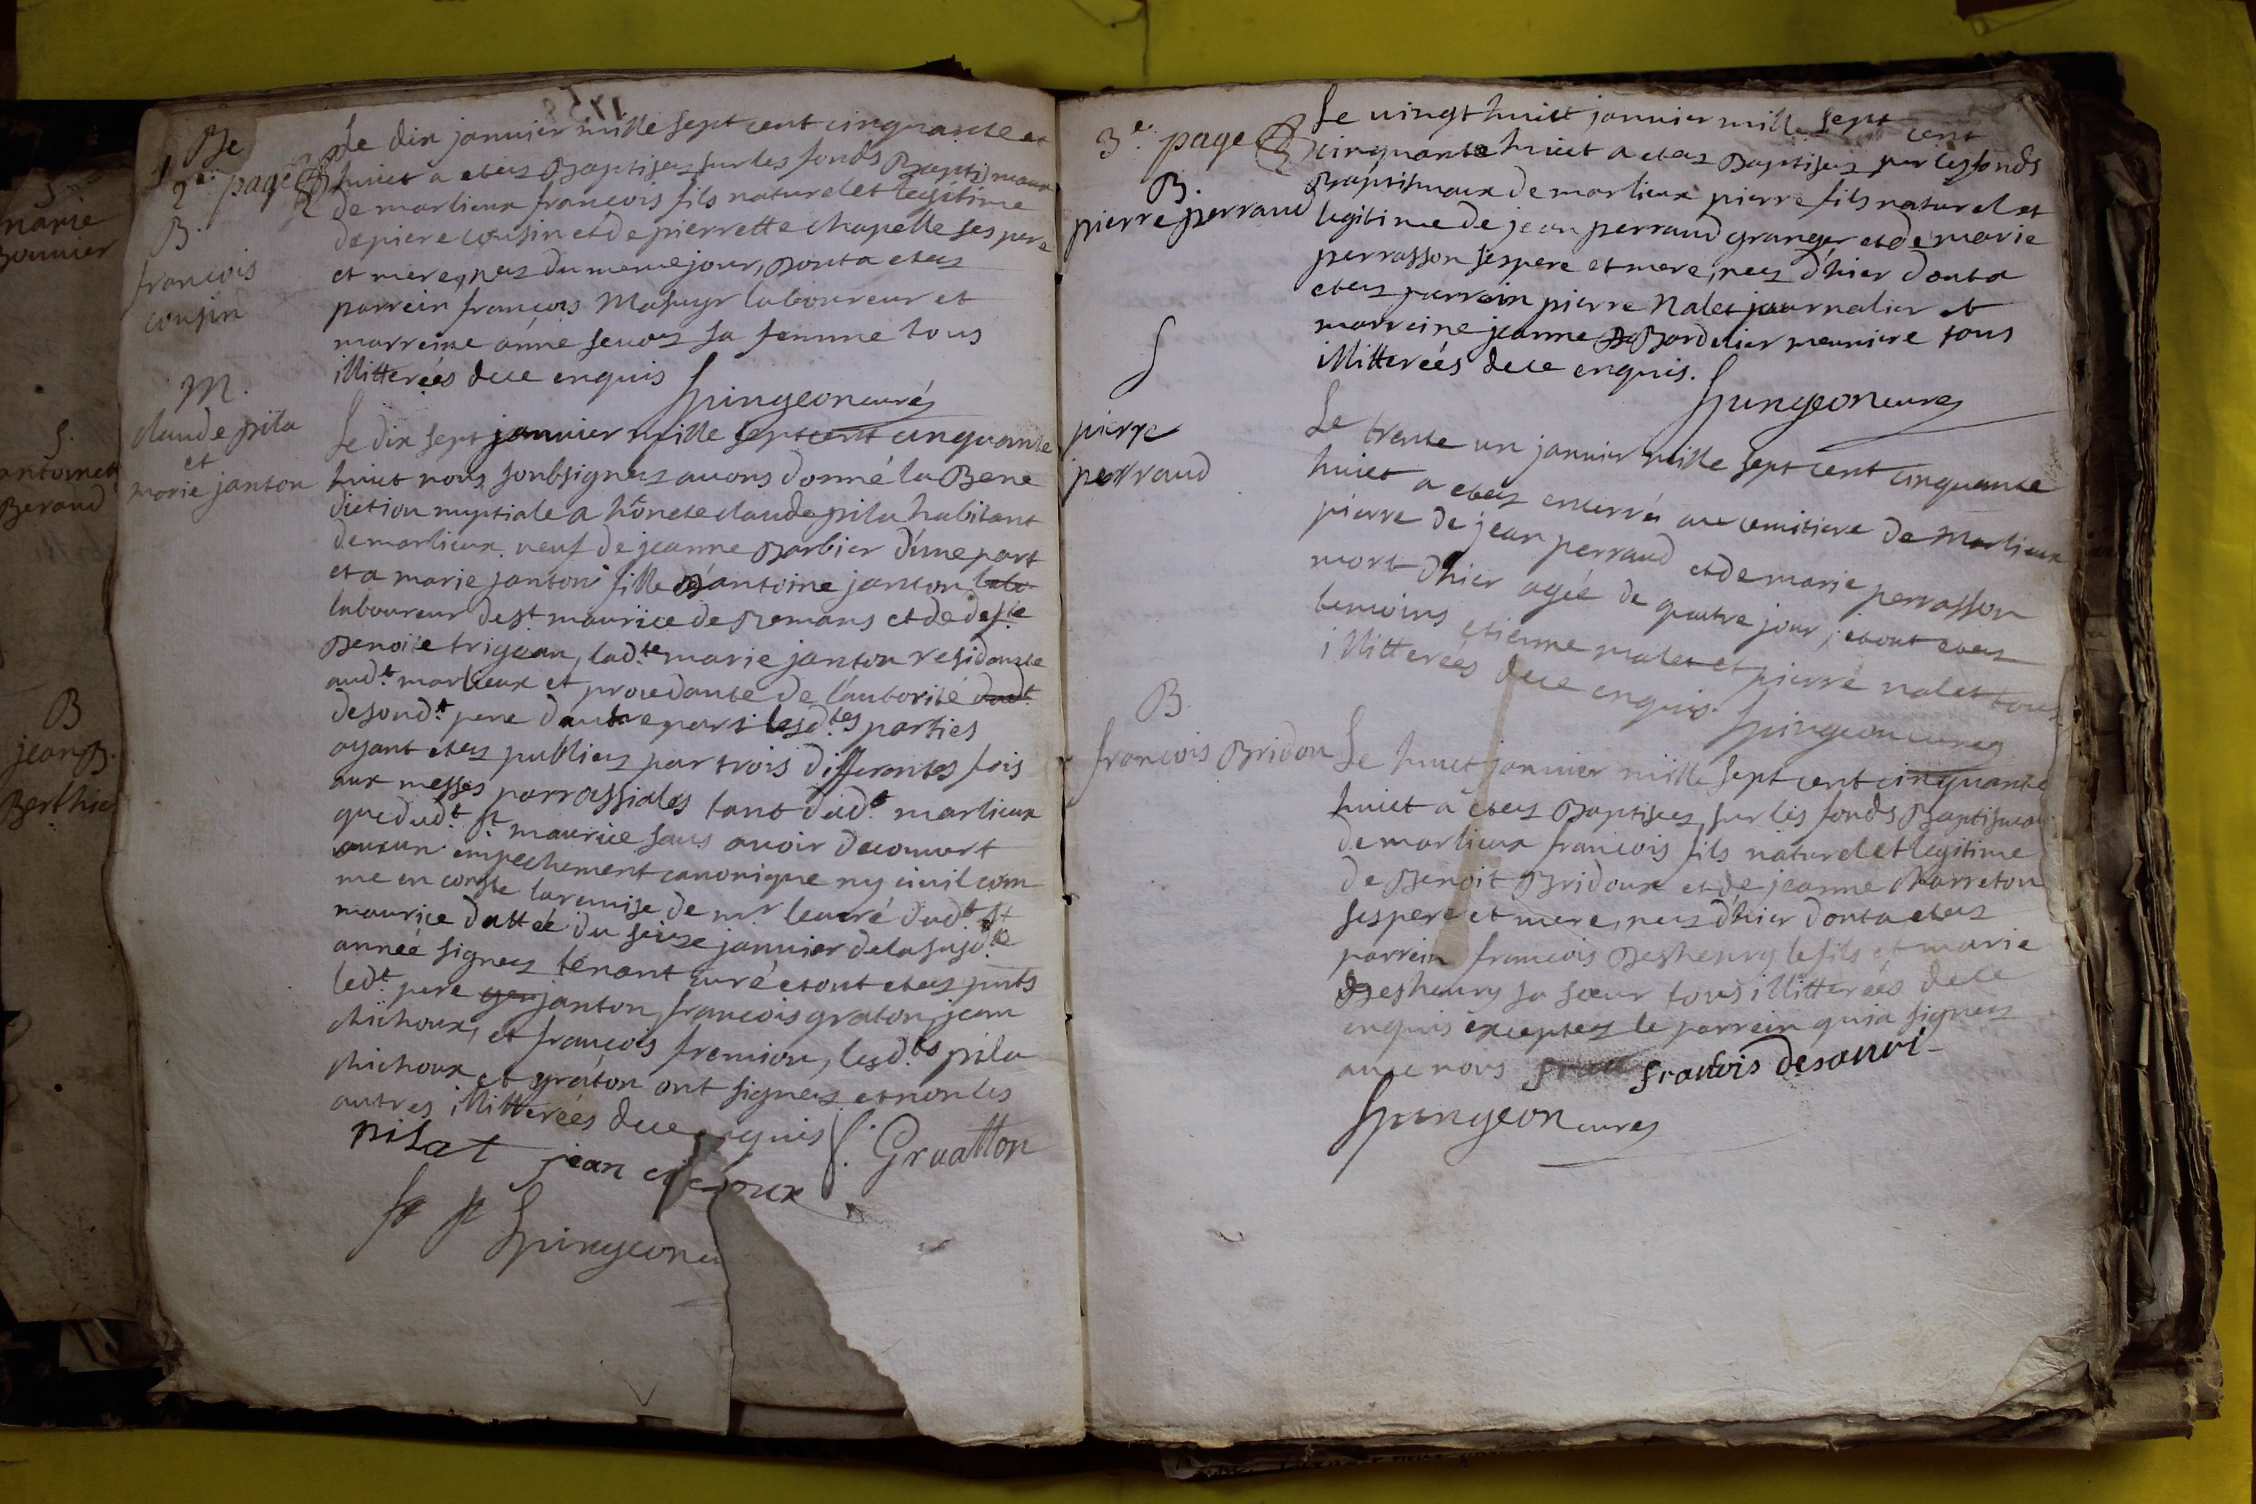 2.e page
B.
françois
cousin
Le dix janvier mille sept cent cinquante et
huict a etez Baptisez sur les fonds Baptismaux
de marlieux françois fils naturel et legitime
de piere cousin et de pierrette chapelle ses pere
et mere, nez du meme jour, dont a etez
parrein françois Masuyr laboureur et
marreine anne sevoz sa femme tous
illitterées de ce enquis
Spingeon curéz
M.
claude pila
et
marie janton
Le dix sept janvier mille sept cent cinquante
huict nous soubsignez avons donné la Bene
diction nuptiale a hônete claude pila habitant
de marlieux veuf de jeanne Barbier d'une part
et a marie janton fille d'antoine janton labo
laboureur de st maurice de Remans et de def.te
Benoite trigean, lad.te marie janton residante
aud.t marlieux et procedante de l'autorité dud.t
de sond.t pere d'autre part lesd.tes parties
ayant etez publiez par trois differentes fois
aux messes parrossiales tant dud.t marlieux
que dud.t st maurice sans avoir decouvert
aucun empechement canonique ny civil com
me en conste la remise de mr le curé dud.t st
maurice dattée du seize janvier de la susd.te
année signez tenant curé et ont etez pnts
led.t pere janton, françois graton, jean
chichoux, et françois fremion, lesd.ts pila
chichoux et graton ont signez et non les
autres illitterées de ce enquis
f. Graatton
pilat jean
Spingeon cu
3.e page
B.
pierre perraud
Le vingt huict janvier mille sept cent
cinquante huict a etez Baptisez sur les fonds
Baptismaux de marlieux pierre fils naturel et
legitime de jean perraud granger et de marie
perrasson ses pere et mere, nez d'hier dont a
etez parrein pierre Nalet journalier et
marreine jeanne Bordelier meuniere tous
illitterées de ce enquis.
Spingeon curez
S
pierre
perraud
Le trente un janvier mille sept cent cinquante
huict a etez enterré au cemitiere de Marlieux
pierre de jean perraud et de marie perrasson
mort d'hier agée de quatre jour, et ont etez
temoins etienne malet et pierre nalet tous
illitterées de ce enquis.
Spingeon curez
B.
françois Bridon
Le huict janvier mille sept cent cinquante
huict a etez Baptisez sur les fonds Baptismau
de marlieux françois fils naturel et legitime
de Benoit Bridoux et de jeanne charreton
ses pere et mere, nez d'hier dont a etez
parrein françois Deshenry le fils et marie
Deshenry sa sœur tous illitterées de ce
enquis exceptez le parrein qui a signez
avec nous francois desanvi
Spingeon curez
S.
marie
S.
antoinet
Beraud
B
jean B.
Berthie